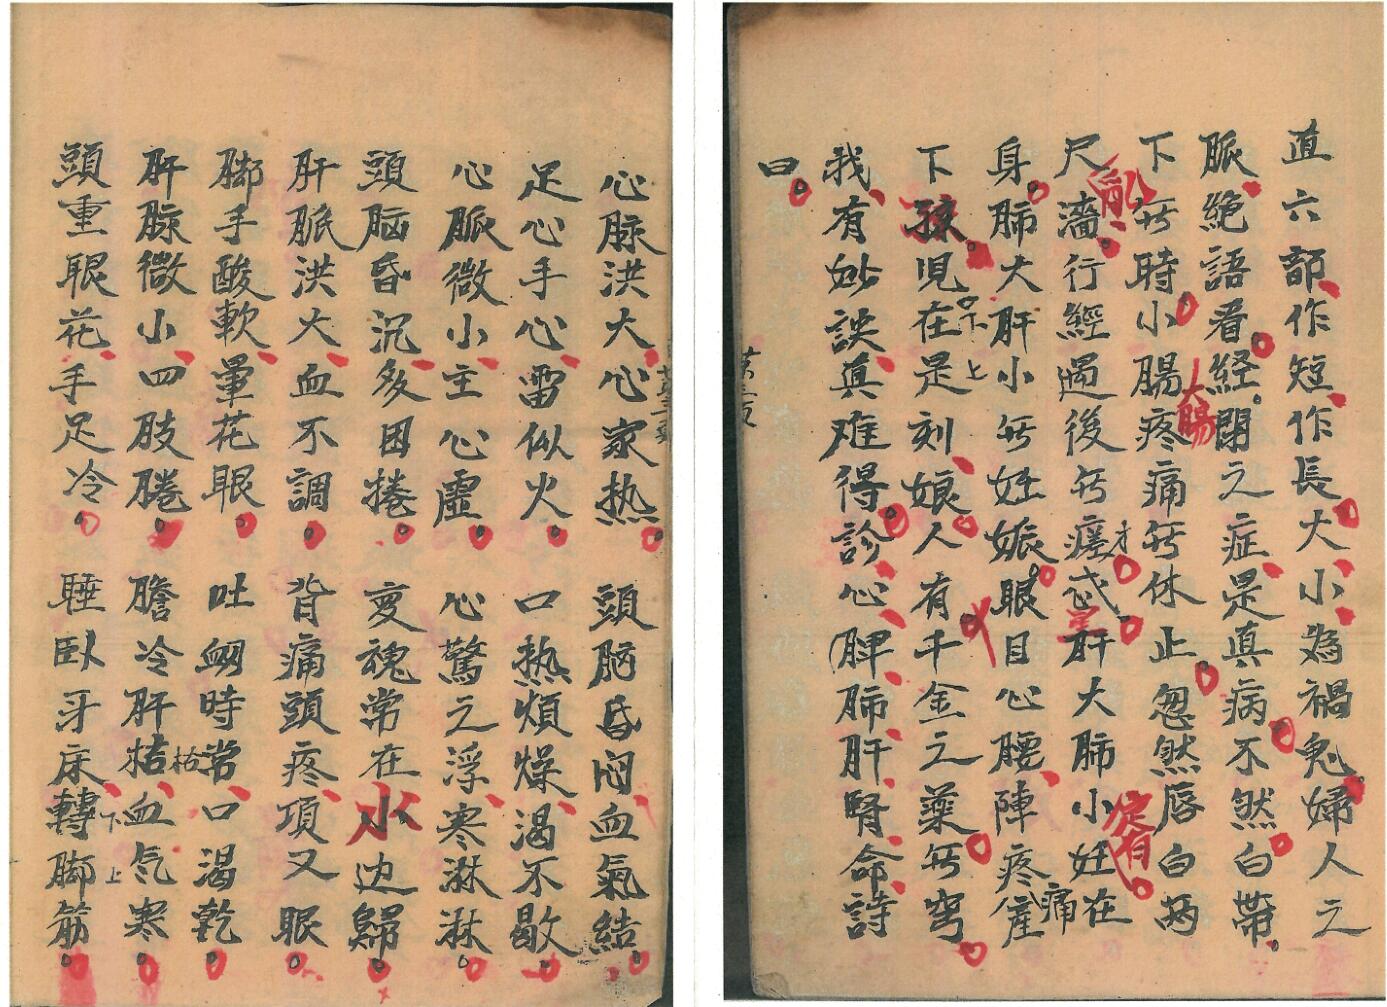 直六部作短作長大小為禍鬼婦人之
脈絶語看経閉之症是真病不然白帶
下無時小腸疼痛無休止忽然唇白两
大腸
尺濇行經過後無瘥或肝大肺小妊在
亂
才
定有
身肺大肝小無妊娠眼目心腰陣疼痛產
下孩児在是刻娘人有千金之藥無窮
下上
我有妙訣真难得診心脾肺肝腎命詩
曰
心脉洪大心家热 頭脑昏闷血氣結
足心手心雷似火 口热煩燥渴不歇
心脈微小主心虛 心驚之浮寒淋淋
頭脑昏沉多困捲 变魂常在水边歸
肝脈洪大血不調 背痛頭疼項又眼
脚手酸軟暈花眼 吐衂時常口渴乾
肝脉微小四肢腃 膽冷肝枯血气寒
枯
頭重眼花手足冷 睡臥牙床轉脚筋
下上